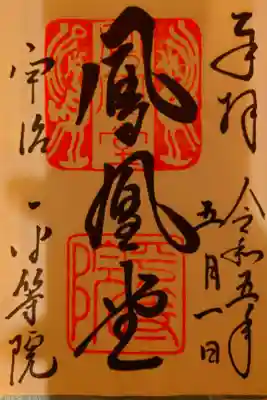 奉拝
令和五年
五月一日
鳳凰堂
宇治
平等院